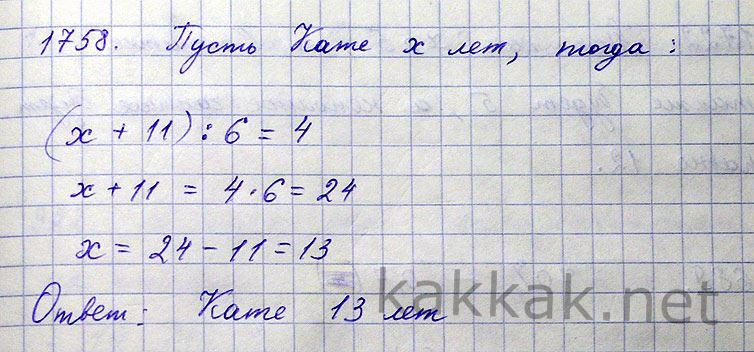 1758. Пусть Кате х лет, тогда:
(x + 11) : 6 = 4
x + 11 = 4 · 6 = 24
x = 24 - 11 = 13
Ответ: Кате 13 лет
kakkak.net